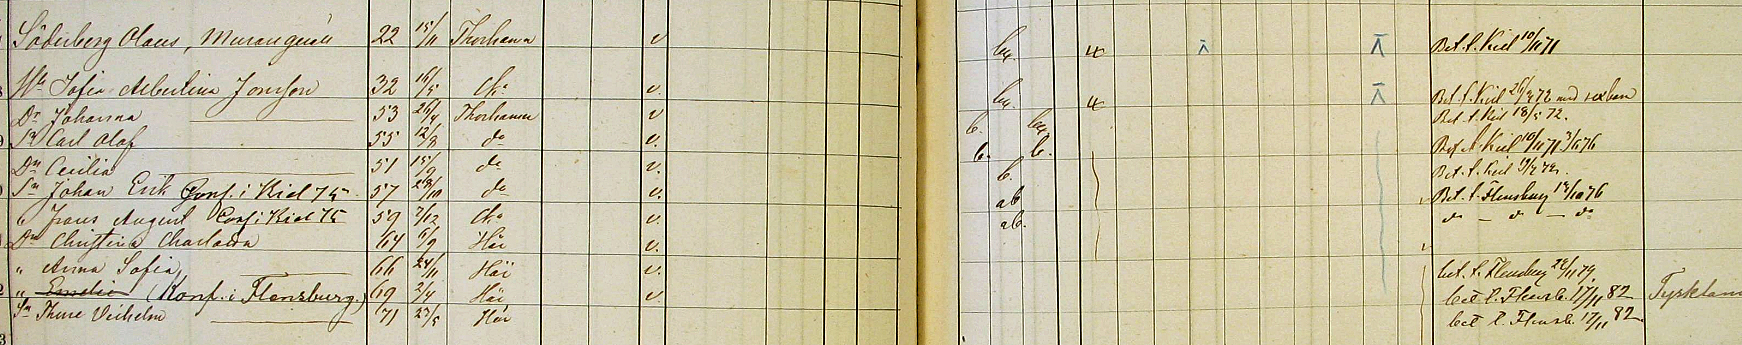 Söderberg Olaus, Muraregesäll 22 15/11 Thorhamn v bu 4 Bet. t. Kiel 10/11 71
Hu Sofia Albertina Jonsson 32 16/5 do v. bu. 4 Bet. t. Kiel 26/3 72 med sexbarn
Dr Johanna 53 26/4 Thorhamn v b. bu Bet. t. Kiel 18/5 72.
Sn Carl Olof 55 12/3 do v. b. b. Bet. t. Kiel 10/11 71
Dr Cecilia 51 15/9 do v. b. Bet. t. Kiel
Sn Johan Erik Conf. i Kiel 75 57 28/10 do v. ab Bet. t. Flensburg 14/10 76
" Frans August Conf. i Kiel 75 59 7/12 do v. ab. do — do — do
Dr Christina Charlotta 64 6/9 Här v.
" Anna Sofia, 66 24/11 Här v. bet. t. Flensburg 24/11 79
" Emelie (Konf. i Flensburg.) 69 2/4 Här v bet t. Flensb. 17/11 82 Tyskland
Sn Thure Vilhelm 71 23/5 Här bet t. Flensb. 17/11 82.